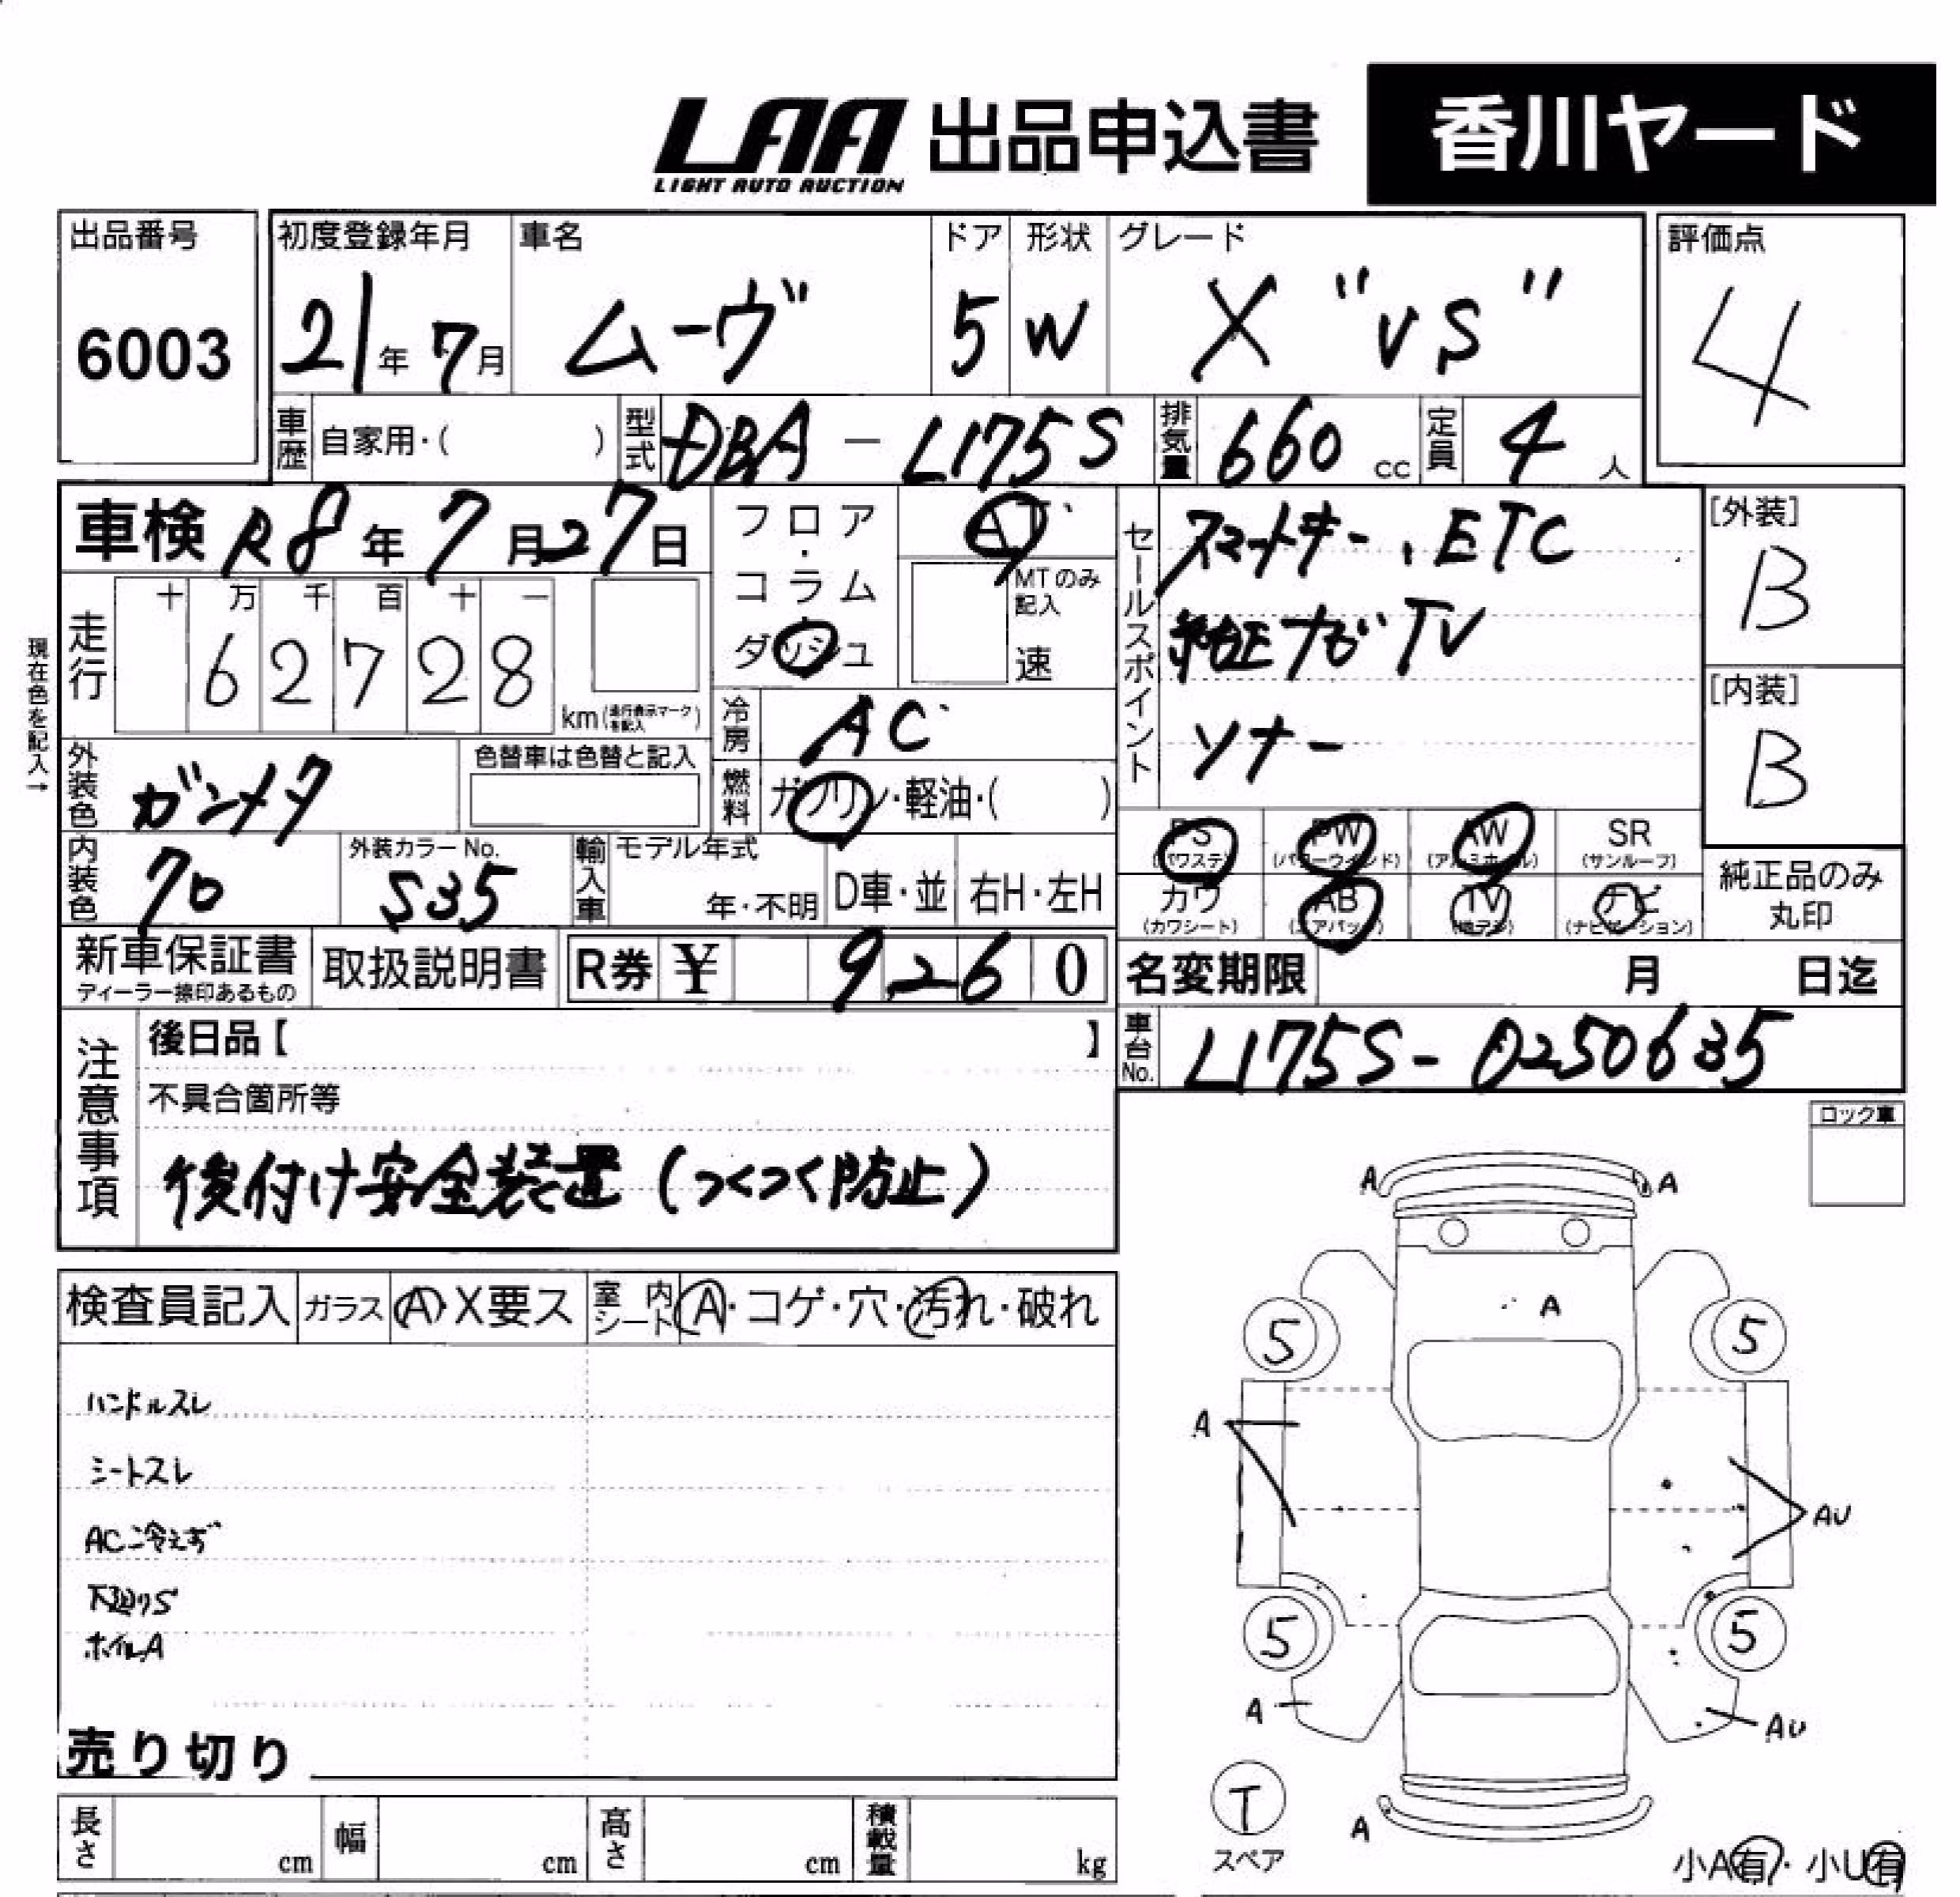 LAA 出品申込書 香川ヤード
LIGHT AUTO AUCTION
出品番号 初度登録年月 車名 ドア 形状 グレード 評価点
6003 21年 7月 ムーヴ 5 W X "VS" 4
車歴 自家用・( ) 型式 DBA-L175S 排気量 660 cc 定員 4 人
車検 R8年 7月27日 フロア・コラム ダッシュ AT
MTのみ記入 速
セールスポイント スマートキー、ETC
純正ナビ TV
ソナー
[外装] B
[内装] B
現在色を記入→
走行 十 万 千 百 十 一
6 2 7 2 8 km(走行表示マークを記入)
冷房 AC
外装色 ガンメタ 色替車は色替と記入
燃料 ガソリン・軽油・( )
PS (パワステ) PW (パワーウインド) AW (アルミホイル) SR (サンルーフ)
内装色 外装カラーNo. S35 輸入車 モデル年式 年・不明 D車・並 右H・左H
カワ (カワシート) AB (エアバッグ) TV (地デジ) ナビ (ナビゲーション)
純正品のみ
丸印
新車保証書 取扱説明書 R券 ¥ 9 2 6 0
ディーラー捺印あるもの
名変期限 月 日迄
車台No. L175S-0250635
注意事項 後日品【 】
不具合箇所等
後付け安全装置(つくつく防止)
ロック車
検査員記入 ガラス A・X要ス 室内シート A・コゲ・穴・汚れ・破れ
ハンドルスレ
シートスレ
AC冷えず
下廻りS
ホイルA
売り切り
A A
A
5 5
A AU
5 5
A AU
T A
スペア
小A有・小U有
長さ cm 幅 cm 高さ cm 積載量 kg